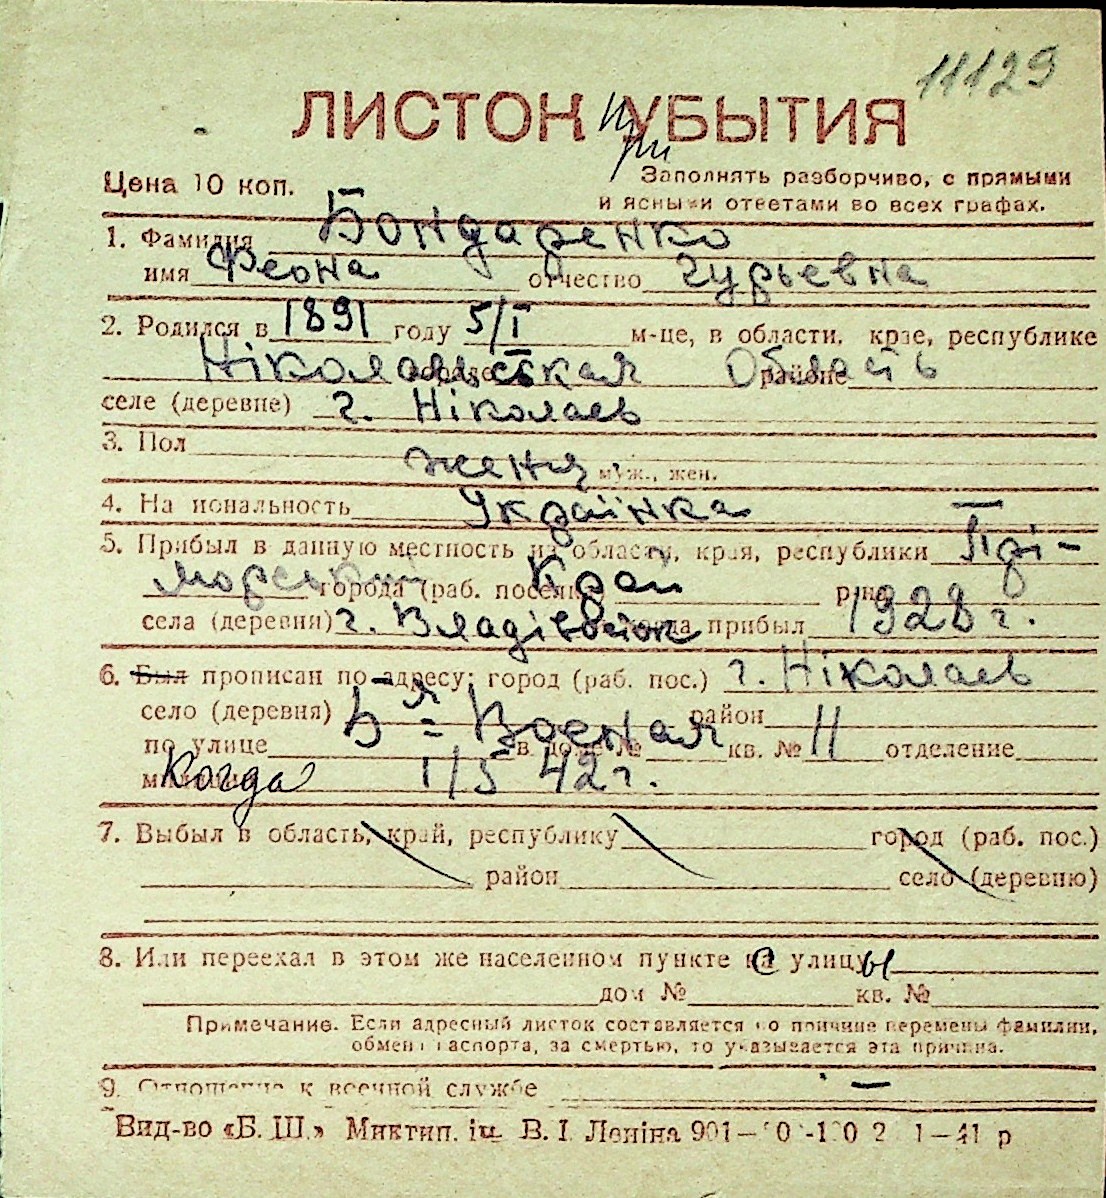 11129
ЛИСТОК УБЫТИЯ
при
Цена 10 коп.
Заполнять разборчиво, с прямыми
и ясными ответами во всех графах.
1. Фамилия Бондаренко
имя Феона отчество Гурьевна
2. Родился в 1891 году 5/I м-це, в области, крае, республике
Ніколаевская городе Область районе
селе (деревне) г. Ніколаев
3. Пол
женя муж., жен.
4. Национальность Украінка
5. Прибыл в данную местность из области, края, республики Прі-
морський города (раб. поселка) Край р-на
села (деревни) г. Владівосток когда прибыл 1928 г.
6. Был прописан по адресу: город (раб. пос.) г. Ніколаев
село (деревня) район
по улице Б-я Военая в доме № кв. № 11 отделение
милиции Когда 1/5 42 г.
7. Выбыл в область, край, республику город (раб. пос.)
район село (деревню)
8. Или переехал в этом же населенном пункте с улицы
дом № кв. №
Примечание. Если адресный листок составляется по причине перемены фамилии,
обмена паспорта, за смертью, то указывается эта причина.
9. Отношение к военной службе —
Вид-во «Б. Ш.» Миктип. ім. В. І. Леніна 901—